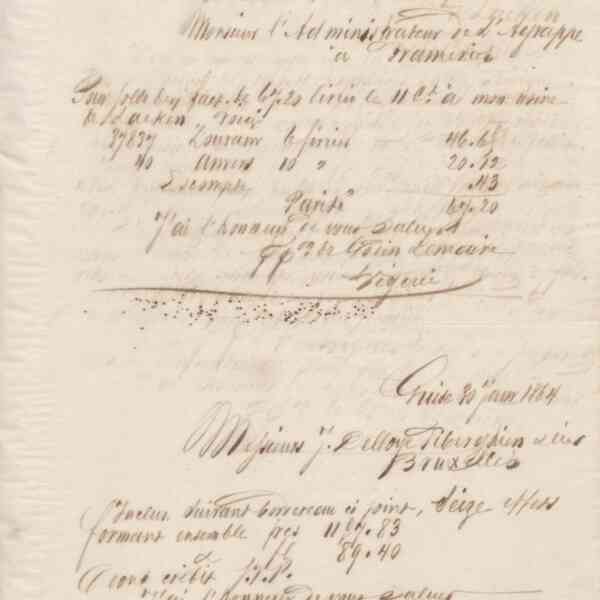 Monsieur l'Administrateur de l'Agrappe
à Frameries
Pour solde de fact. de 67.20 livré le 11 Ct à mon usine
de Laeken
37837 Louvain 6 février 46.65
40 Anvers 10 " 20.12
Escompte .43
Parité 67.20
J'ai l'honneur de vous saluer
Pp on de Godin Lemaire
Guise 30 janv 1864
Messieurs J. Delloye Tiberghien &
Bruxelles
Inclus suivant bordereau ci joint, seize effets
formant ensemble frcs 1187.83
89.40
à mon crédit S.V.P.
J'ai l'honneur de vous saluer